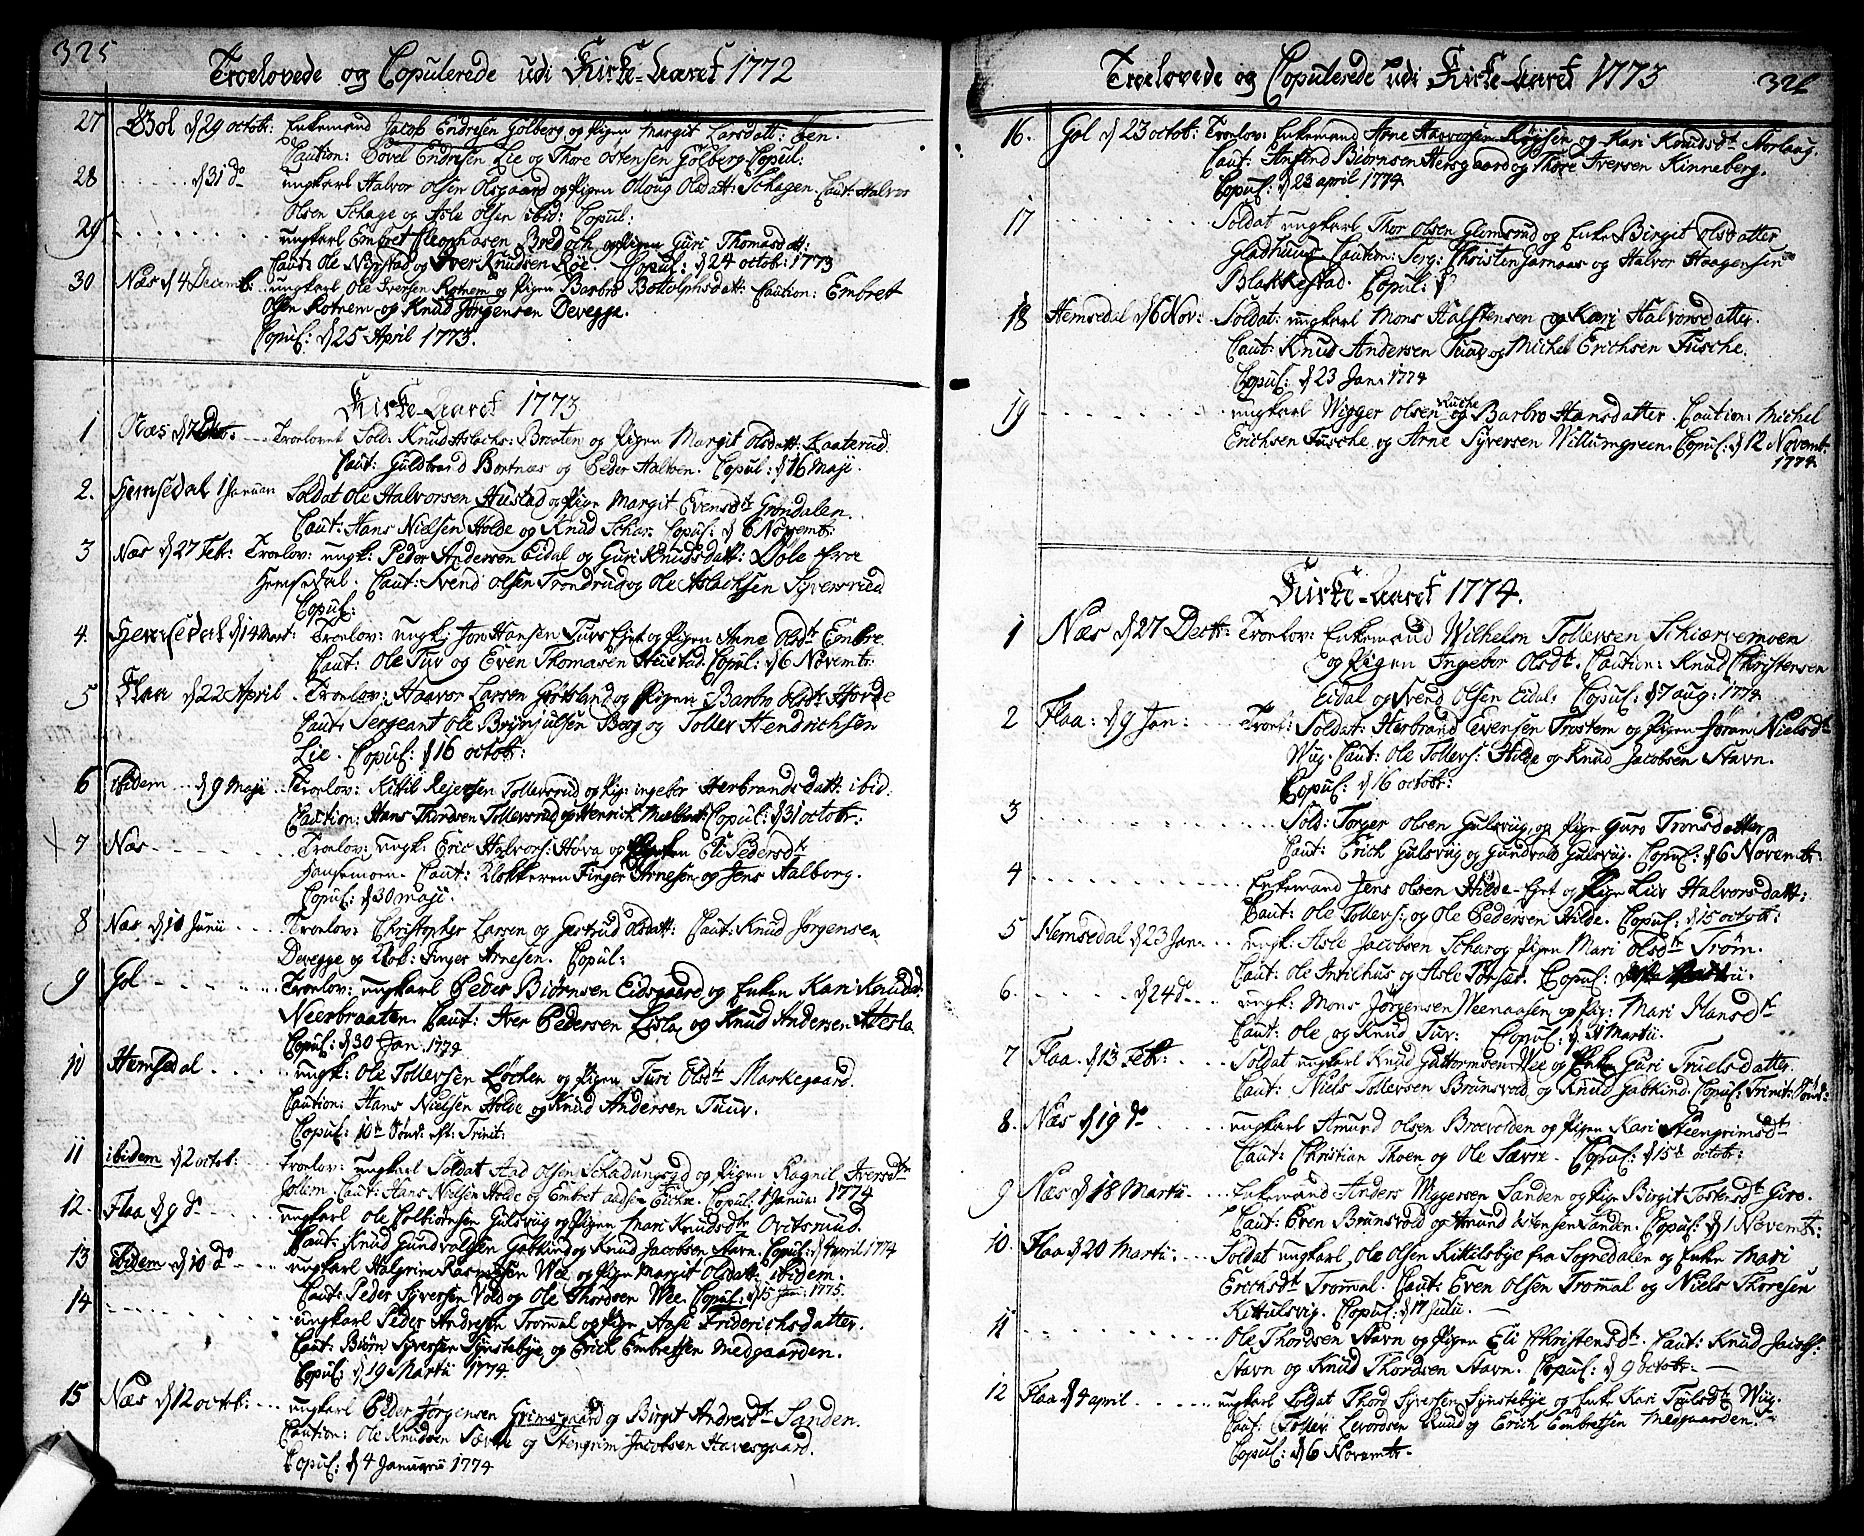 325
Troelovede og Copulerede udi Kirke-Aaret 1772
27 Gol d 29 octob: Enkemand Jacob Endresen Golberg og Pigen Margit Larsdatt:
Caution: Endresen Lie og Thore ostensen Golberg. Copul:
28 d 31 do ungkarl Halvor olsen olsgaard og Pigen olloug olsdatt: Schagen. Caut: Halvor
olsen Schage og Asle olsen ibid: Copul:
29 ungkarl Embret Cleophasen og Pigen Guri Thomasdatt:
Caut: ole Nystad og Iver Knudsen Röe. Copul: d 24 octob: 1773
30 Næs d 4 Decemb: ungkarl ole Iversen Rotnem og Pigen Barbro Bottolphsdatt: Caution: Embret
olsen Rotnem og Knud Jørgensen Devegge.
Copul: d 25 April 1773.
Kirke-Aaret 1773
1 Næs Troelovet Sold: Knud Aslachs: Braaten og Pigen Margit olsdatt: Kaaterud
Caut: Guldbrand Bortnæs og Peder Halven. Copul: d 16 Maji.
2. Hemsedal 1 Januari Soldat ole Halvorsen Hustad og Pigen Margit Evensdt Grøndalen.
Caut: Hans Nielsen Holde og Knud Schar. Copul: d 6 Novembr:
3 Næs d 27 Feb: Troelov: ungk: Peder Andersen Eidal og Guri Knudsdatt: Døle
Hemsedal. Caut: Svend olsen Trondrud og ole Aslachsen Syversrud
Copul:
4. Hemsedal d 14 Mart: Troelov: ungk: Jon Hansen Tuvs Ejet og Pigen Anne olsdt Embre
Caut: ole Tuv og Even Thomasen Hustad. Copul: d 6 Novembr:
5 Flaa d 22 April Troelov: Haavor Larsen Grøtsland og Pigen Barbro olsdt Hovde
Caut: Sergeant ole Brynjulsen Berg og Toller Hendrichsen
Lie. Copul: d 16 octob:
6 ibidem d 9 Maji Troelov: Kittil Rejersen Tollevsrud og Pig: ingebor Herbrandsdatt: ibid.
Caution: Hans Thordsen Tollevsrud og Henrich Copul: d 31 octob:
7 Næs Troelov: ungk: Eric Halvors: Høva og Eli Pedersdt
Hansemoen. Caut: Klokkeren Finger Arnesen og Jens Aalborg.
Copul: d 30 Maji.
8 Næs d 10 Junii Troelov: Christopher Larsen og Giertrud olsdatt: Caut: Knud Jørgensen
Devegge og Klok: Finger Arnesen. Copul:
9 Gol Troelov: ungkarl Peder Biørnsen Eidsgaard og Enken Kari Knudsd:
Neerbraaten. Caut: Iver Pedersen Lisla og Knud Andersen Hesla
Copul: d 30 Jan. 1774
10 Hemsedal ungk: ole Tollevsen Løchen og Pigen Turi olsdt Markegaard.
Caution: Hans Nielsen Holde og Knud Andersen Tuuv.
Copul: 10de Sønd: eft: Trinit:
11 ibidem d 2 octob: troelov: ungkarl Soldat Aad olsen og Pigen Ragnil Iversdtr
Caut: Hans Nielsen Holde og Embret Copul: 1 Janua: 1774
12. Flaa d 9 do ungkarl ole Colbiørnsen Gulsvig og Pigen Mari Knudsdtr
Caut: Knud Gundvaldsen Gabkind og Knud Jacobsen Stavn. Copul: d April 1774
13 ibidem d 10 do ungkarl Halgrim Rasmussen Wee og Pigen Margit olsdatt: ibidem.
Caut: Peder Syversen Vold og ole Thordsen Wee. Copul: d 15 1775.
14 ungkarl Peder Andresen Trommal og Pigen Aase Friderichsdatter.
Caut: Biørn Syversen Synstebye og Erick Embretsen Medgaarden.
Copul: d 19 Martii 1774.
15 Næs d 12 octob: ungkarl Peder Jørgensen Grimsgaard og Birgit Andresdt Sanden.
Caution: ole Knudsen Særre og Stengrim Jacobsen Havesgaard.
Copul: d 4 Januarii 1774
326
Troelovede og Copulerede udi Kirke-Aaret 1773
16. Gol d 23 octob: Troelov: Enkemand Arne Haavorsen Røysen og Kari Knudsdt Storlaug.
Caut: Anfind Biørnsen Hersgaard og Thore Iversen Kinneberg.
Copul: d 23 april 1774
17 Soldat ungkarl Thor olsen Glemsrud og Enke Birgit olsdatter
Gladhuus Caution: Serg: Christen Garnaas og Halvor Haagensen
Blakkestad. Copul: d
18 Hemsedal d 6 Nov: Soldat: ungkarl Mons Halstensen og Kari Halvorsdatter.
Caut: Knud Andersen Tuuv og Michel Erichsen Fusche.
Copul: d 23 Jan: 1774
19 ungkarl Wigger olsen og Barbro Hansdatter. Caution: Michel
Erichsen Fusche og Arne Syversen Willumgreen. Copul: d 12 Novemt.
1774.
Kirke-Aaret 1774.
1 Næs d 27 Dectr: Troelov: Enkemand Wilhelm Tollevsen Schiærvemoen
og Pigen Ingebor olsdt. Caution: Knud Christensen
Eidal og Svend olsen Eidal: Copul: d 7 aug: 1774
2 Flaa: d 9 Jan: Troel: Soldat: Herbrand Evensen Trostem og Pigen Jøran Nielsdt
Wug. Caut: ole Tollevs: Hilde og Knud Jacobsen Stavn.
Copul: d 16 octobr:
3 Sold: Torger olsen Gulsvig og Pige Guro Tronsdatter
Caut: Erich Gulsvig og Gundvald Gulsvig. Copul: d 6 Novembr:
4 Enkemand Jens olsen Hilde-Ejet og Pige Liv Halvorsdatt:
Caut: ole Tollevs: og ole Pedersen Hilde. Copul: d 15 octob:
5 Hemsedal d 23 Jan. ungk: Asle Jacobsen Schar og Pigen Mari olsdtr Trøm.
Caut: ole Intilhus og Asle Torset. Copul:
6. d 24 do ungk: Mons Jørgensen Veenaasen og Pig: Mari Hansdt
Caut: ole og Knud Tuv: Copul: d Martii.
7 Flaa d 13 Feb: Soldat ungkarl Knud Guttormsen Wee og Enke Guri Truelsdatter.
Caut: Niels Tollevsen Brunsvold og Knud Gabkind. Copul: Trinit: Sønd:
8. Næs d 19 do ungkarl Amund olsen Broevolden og Pigen Kari Steengrimsdt
Caut: Christian Thoen og ole Særre. Copul: d 15de octob:
9 Næs d 18 Martii Enkemand Anders Wiggersen Sanden og Pige Birgit Tostensdt Giro.
Caut: Even Brunsvold og Amund ostensen Sanden. Copul: d 1 Novembr:
10. Flaa d 20 Martii: Soldat ungkarl ole olsen Kittilsbye fra Sognedalen og Enke Mari
Erichsdt Trommal. Caut: Even olsen Trommal og Niels Thoresen
Kittulsvig. Copul: d 17 Julii.
11 ole Thordsen Stavn og Pigen Eli Christensdt. Caut: Knud Jacobs:
Stavn og Knud Thordsen Stavn. Copul: d 9 octobr:
12 Flaa d 4 april ungkarl Soldat Thord Syversen Synstebye og Enke Kari Truelsdt Wiig
Caut: Toller Levordsen Ruud og Erich Embretsen Medgaarden.
Copul: d 6 Novembr: